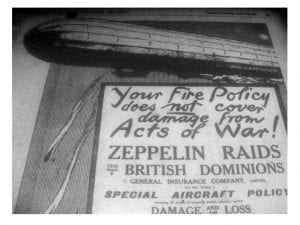 Your Fire Policy
does not cover
damage from
Acts of War!
ZEPPELIN RAIDS
THE BRITISH DOMINIONS
GENERAL INSURANCE COMPANY, LIMITED,
SPECIAL AIRCRAFT POLICY
DAMAGE AND LOSS